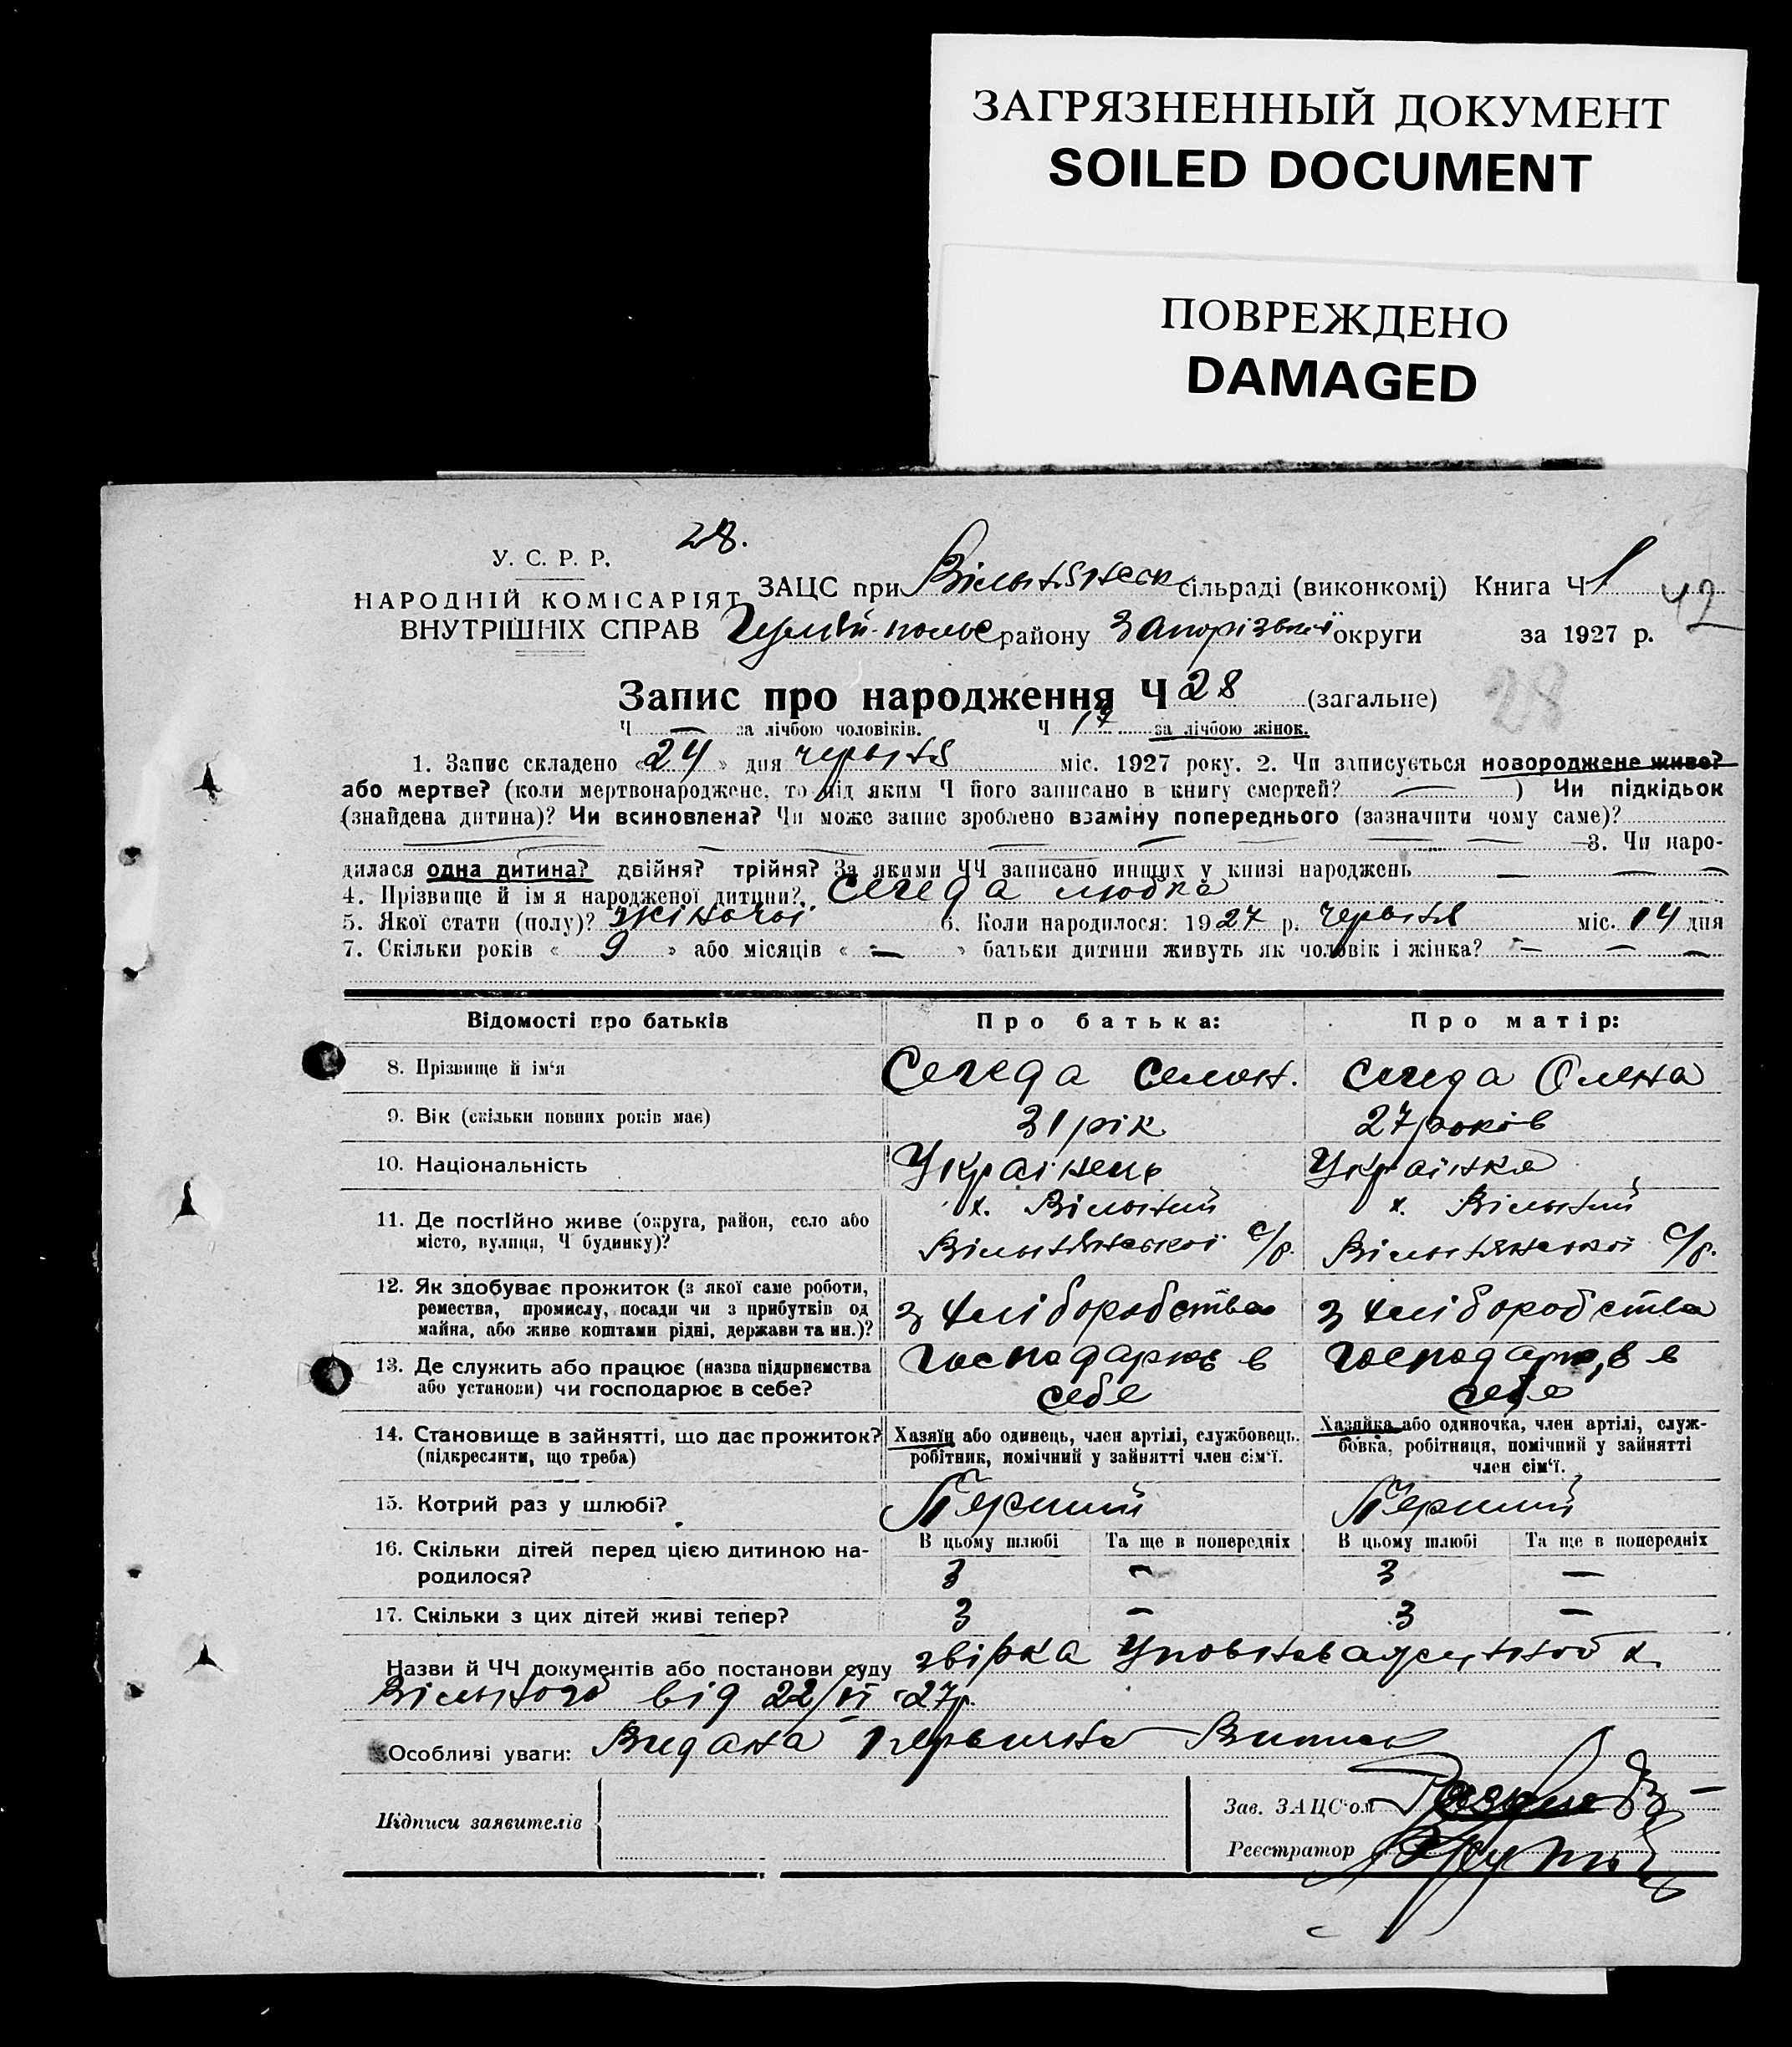 ЗАГРЯЗНЕННЫЙ ДОКУМЕНТ
SOILED DOCUMENT
ПОВРЕЖДЕНО
DAMAGED
28.
У. С. Р. Р.
НАРОДНІЙ КОМІСАРІЯТ
ВНУТРІШНІХ СПРАВ
ЗАЦС при Вільнянськ сільраді (виконкомі) Книга Ч 1 42
Гуляй-польс району Запорізької округи за 1927 р.
Запис про народження Ч 28 (загальне) 28
Ч — за лічбою чоловіків. Ч 17 за лічбою жінок.
1. Запис складено «24» дня червня міс. 1927 року. 2. Чи записується новороджене живе?
або мертве? (коли мертвонароджене, то під яким Ч його записано в книгу смертей? — ) Чи підкідьок
(знайдена дитина)? Чи всиновлена? Чи може запис зроблено взаміну попереднього (зазначити чому саме)?
— — — — — — — 3. Чи наро-
дилася одна дитина? двійня? трійня? За якими ЧЧ записано инших у книзі народжень — — —
4. Прізвище й ім'я народженої дитини? Сегеда Любка
5. Якої стати (полу)? жіночої 6. Коли народилося: 1927 р. червня міс. 14 дня
7. Скільки років « 9 » або місяців « — » батьки дитини живуть як чоловік і жінка? — — —
Відомості про батьків Про батька: Про матір:
8. Прізвище й ім'я Сегеда Семен. Сегеда Олена
9. Вік (скільки повних років має) 31 рік 27 років
10. Національність Українець Українка
11. Де постійно живе (округа, район, село або
місто, вулиця, Ч будинку)?
х. Вільний
Вільнянської с/р.
х. Вільний
Вільнянської с/р.
12. Як здобуває прожиток (з якої саме роботи,
ремества, промислу, посади чи з прибутків од
майна, або живе коштами рідні, держави та ин.)?
з хліборобства з хліборобства
13. Де служить або працює (назва підприємства
або установи) чи господарює в себе?
господарює в
себе
господарює в
себе
14. Становище в зайнятті, що дає прожиток?
(підкреслити, що треба)
Хазяїн або одинець, член артілі, службовець.
робітник, помічний у зайнятті член сім'ї.
Хазяйка або одиночка, член артілі, служ-
бовка, робітниця, помічний у зайнятті
член сім'ї.
15. Котрий раз у шлюбі? Перший Перший
16. Скільки дітей перед цією дитиною на-
родилося?
В цьому шлюбі Та ще в попередніх В цьому шлюбі Та ще в попередніх
3 — 3 —
17. Скільки з цих дітей живі тепер? 3 — 3 —
Назви й ЧЧ документів або постанови суду звірка Уповноваженной х.
Вільного від 22/VI 27р.
Особливі уваги: Видана первична Випись
Підписи заявителів
Зав. ЗАЦС'ом
Реєстратор